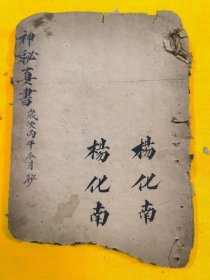 楊化南
楊化南
神秘真書
歲次丙午冬月抄